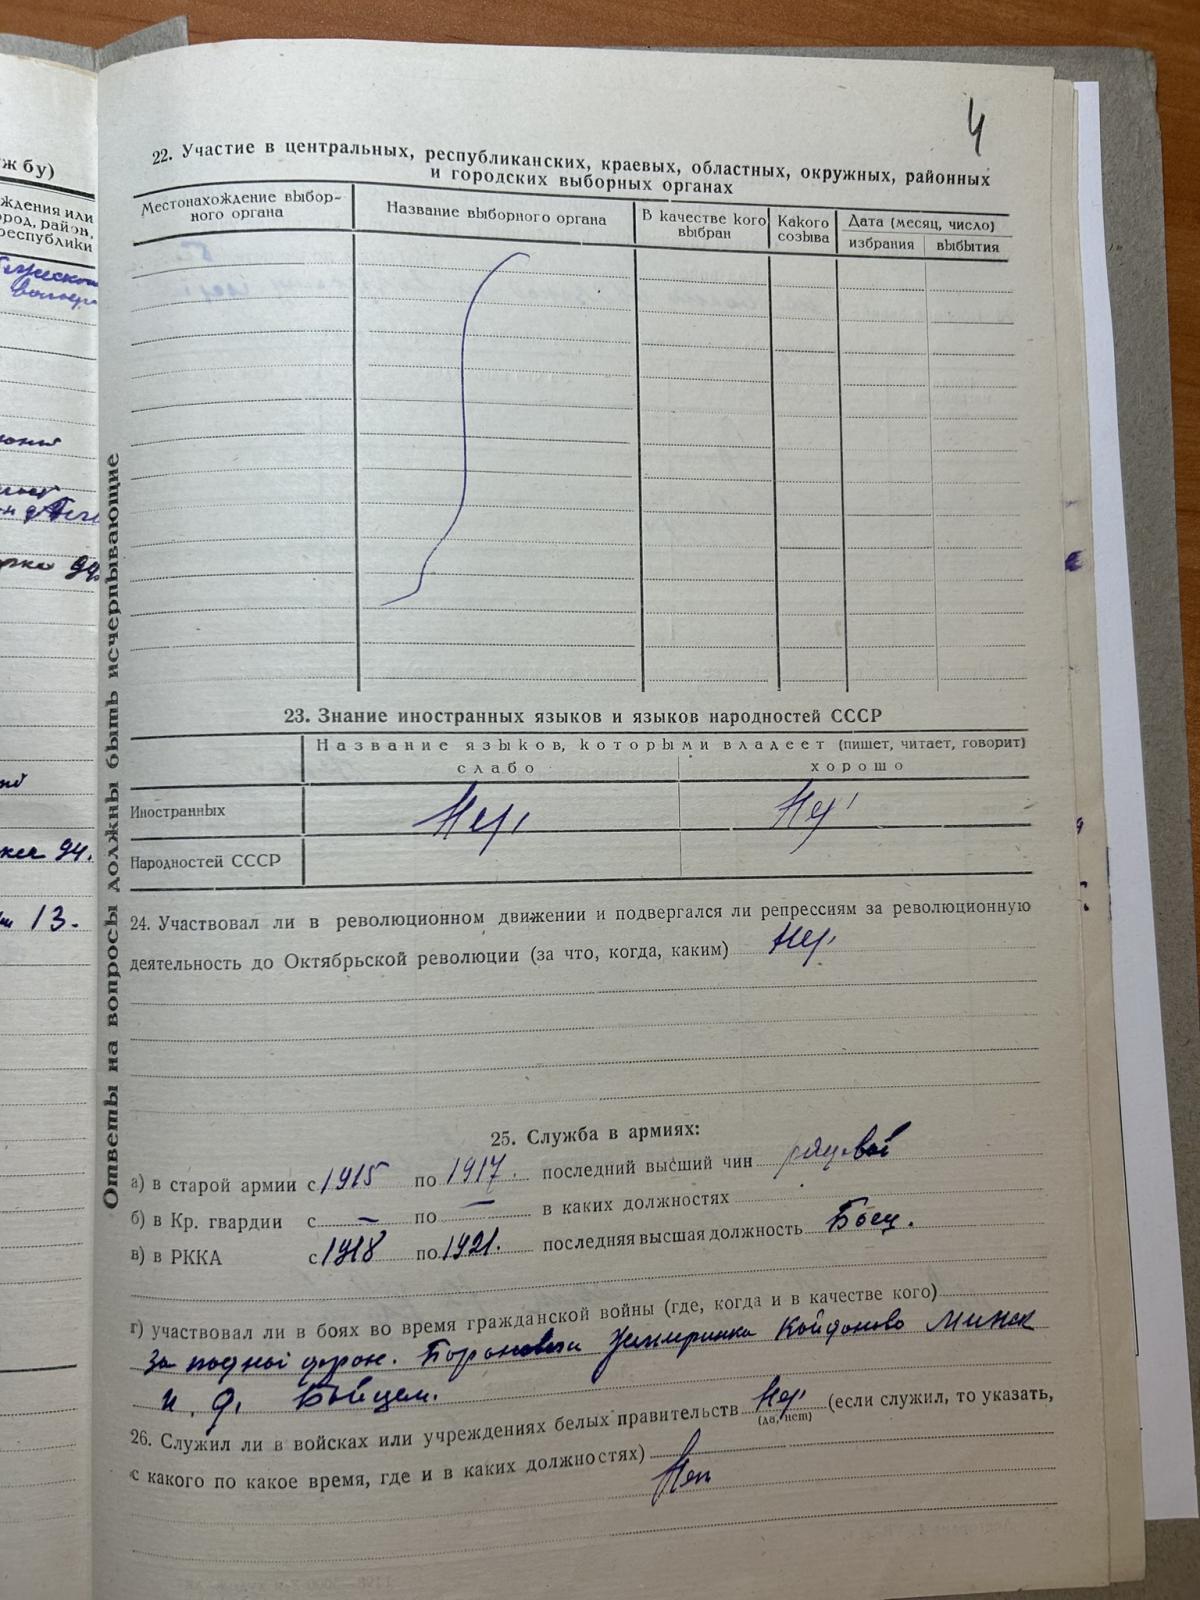 4
ж бу)
ждения или
ород, район,
республики
94.
13.
Ответы на вопросы должны быть исчерпывающие
22. Участие в центральных, республиканских, краевых, областных, окружных, районных
и городских выборных органах
Местонахождение выбор-
ного органа
Название выборного органа
В качестве кого
выбран
Какого
созыва
Дата (месяц, число)
избрания
выбытия
23. Знание иностранных языков и языков народностей СССР
Название языков, которыми владеет (пишет, читает, говорит)
слабо
хорошо
Иностранных Нет Нет
Народностей СССР
24. Участвовал ли в революционном движении и подвергался ли репрессиям за революционную
деятельность до Октябрьской революции (за что, когда, каким) Нет
25. Служба в армиях:
а) в старой армии с 1915 по 1917. последний высший чин рядовой
б) в Кр. гвардии с — по — в каких должностях
в) в РККА с 1918 по 1921. последняя высшая должность Боец.
г) участвовал ли в боях во время гражданской войны (где, когда и в качестве кого)
Западной фрон. Барановичи Койданово Минск
и. д. Бойцем.
26. Служил ли в войсках или учреждениях белых правительств Нет (если служил, то указать,
(да, нет)
с какого по какое время, где и в каких должностях)
Нет